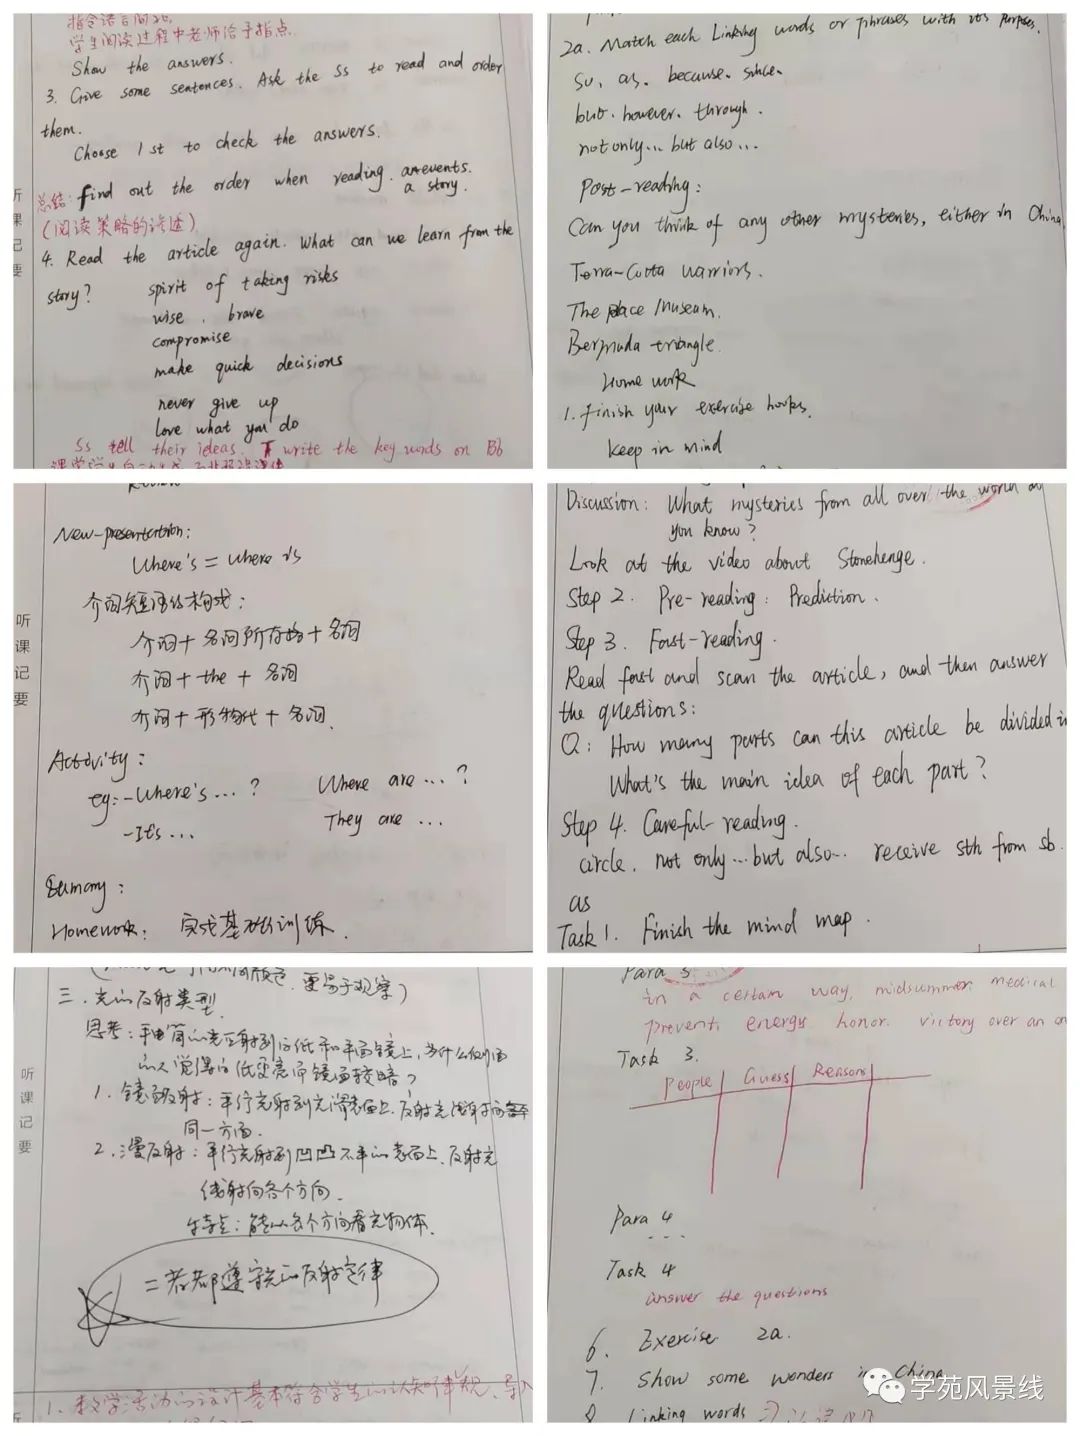 学生阅读过程中老师给予指点.
Show the answers.
3. Give some sentences. Ask the Ss to read and order
them.
Choose 1 st to check the answers.
总结: find out the order when reading. an events.
a story.
(阅读策略的渗透)
4. Read the article again. What can we learn from the
story? spirit of taking risks
wise, brave
compromise
make quick decisions
never give up
love what you do
Ss tell their ideas. T write the key words on Bb
听课记要
2a. Match each Linking words or phrases with its purposes.
so, as, because, since.
but. however. through.
not only... but also...
Post-reading:
Can you think of any other mysteries, either in China
Terra-Cotta warriors.
The place Museum.
Bermuda triangle.
Home work
1. Finish your exercise books.
keep in mind
Review
New-presentation:
Where's = where is
介词短语的构成:
介词+名词所有格+名词
介词+the+名词
介词+形物代+名词.
Activity:
eg: -Where's ... ? Where are ... ?
-It's ... They are ...
Summary:
Homework: 完成基础训练.
听课记要
Discussion: What mysteries from all over the world do
you know?
Look at the video about Stonehenge.
Step 2. Pre-reading: Prediction.
Step 3. Fast-reading.
Read fast and scan the article, and then answer
the questions:
Q: How many parts can this article be divided in
What's the main idea of each part?
Step 4. Careful-reading.
circle. not only...but also... receive sth from sb.
as
Task 1. Finish the mind map.
更易于观察)
三. 光的反射类型.
思考: 手电筒的光正射到白纸和平面镜上, 为什么侧面
的人觉得白纸更亮而镜面较暗?
1. 镜面反射: 平行光射到光滑表面上, 反射光线射向
同一方面.
2. 漫反射: 平行光射到凹凸不平的表面上, 反射光
线射向各个方向.
特点: 能从各个方向看光物体.
二者都遵守光的反射定律
1. 教学活动的设计基本符合学生的认知规律, 导入
听课记要
Para 3
in a certain way, midsummer medical
prevent, energy honor. victory over an en
Task 3.
People Guess Reasons
Para 4
...
Task 4
answer the questions
6. Exercise 2a.
7. Show some wonders in China
8 Linking words
学苑风景线